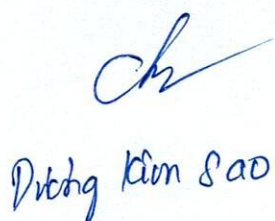 Dương Kim Sao